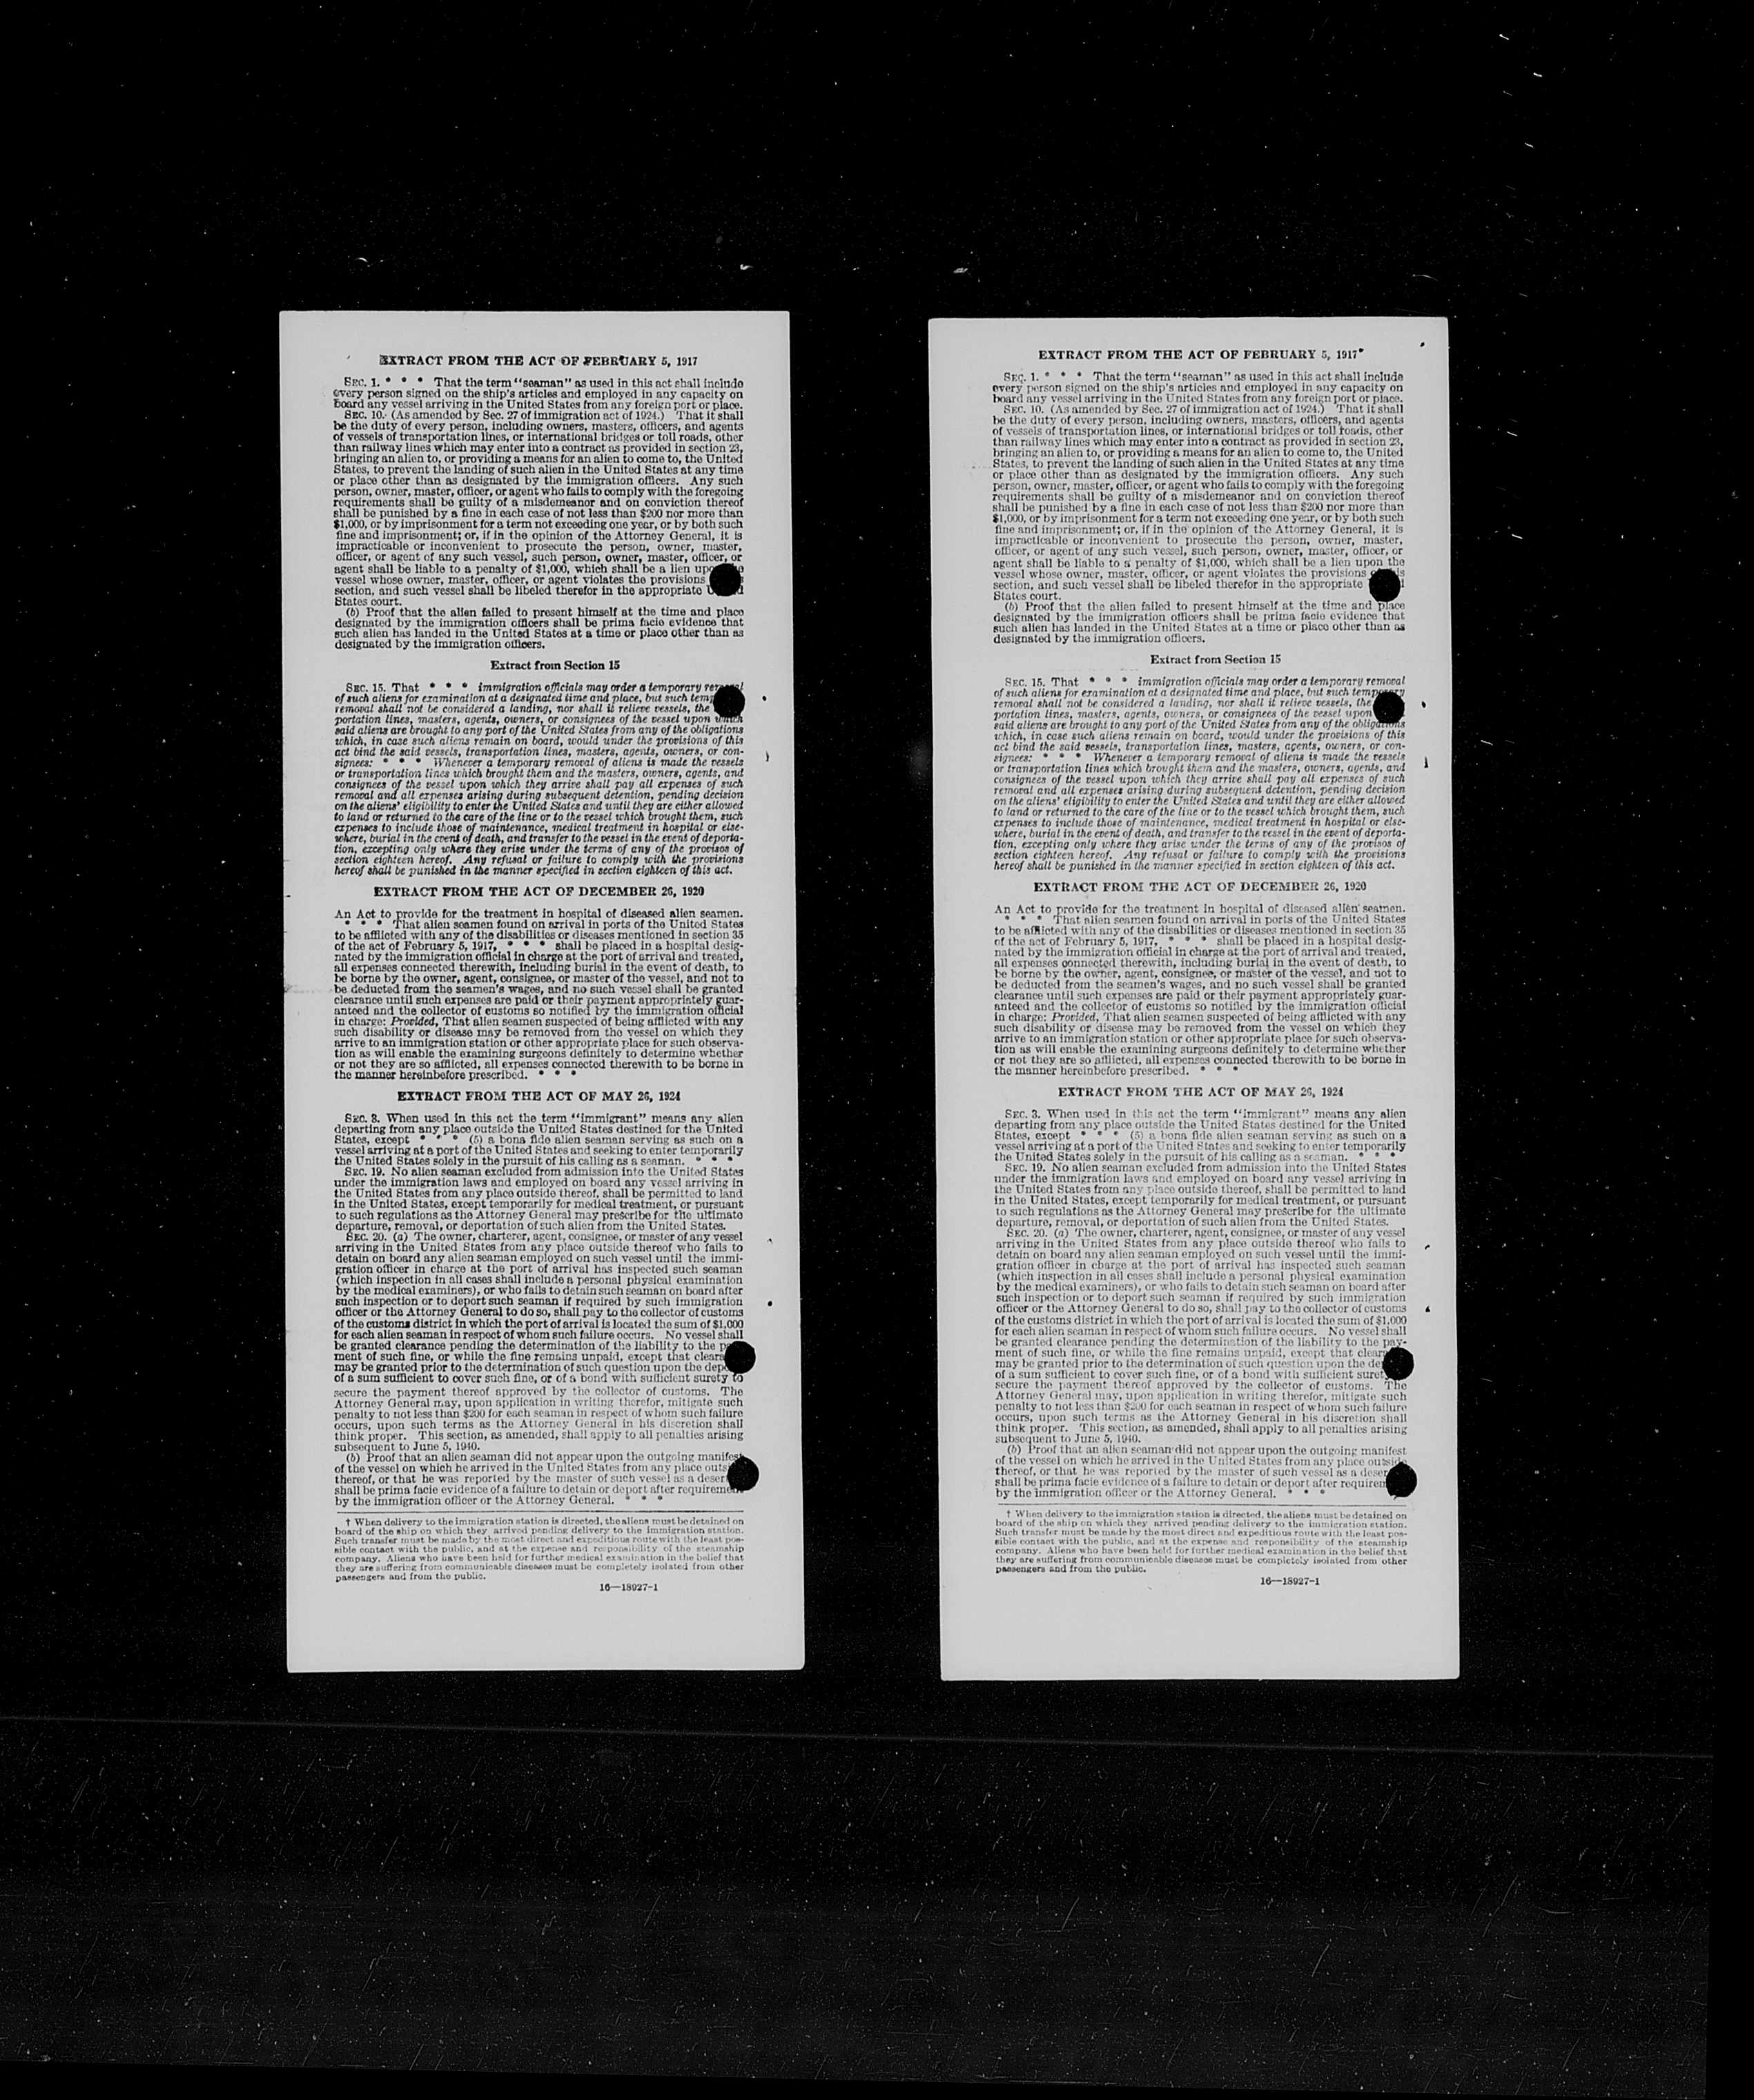 EXTRACT FROM THE ACT OF FEBRUARY 5, 1917
SEC. 1. * * * That the term "seaman" as used in this act shall include
every person signed on the ship's articles and employed in any capacity on
board any vessel arriving in the United States from any foreign port or place.
SEC. 10. (As amended by Sec. 27 of immigration act of 1924.) That it shall
be the duty of every person, including owners, masters, officers, and agents
of vessels of transportation lines, or international bridges or toll roads, other
than railway lines which may enter into a contract as provided in section 23,
bringing an alien to, or providing a means for an alien to come to, the United
States, to prevent the landing of such alien in the United States at any time
or place other than as designated by the immigration officers. Any such
person, owner, master, officer, or agent who fails to comply with the foregoing
requirements shall be guilty of a misdemeanor and on conviction thereof
shall be punished by a fine in each case of not less than $200 nor more than
$1,000, or by imprisonment for a term not exceeding one year, or by both such
fine and imprisonment; or, if in the opinion of the Attorney General, it is
impracticable or inconvenient to prosecute the person, owner, master,
officer, or agent of any such vessel, such person, owner, master, officer, or
agent shall be liable to a penalty of $1,000, which shall be a lien upon
vessel whose owner, master, officer, or agent violates the provisions
section, and such vessel shall be libeled therefor in the appropriate
States court.
(b) Proof that the alien failed to present himself at the time and place
designated by the immigration officers shall be prima facie evidence that
such alien has landed in the United States at a time or place other than as
designated by the immigration officers.
Extract from Section 15
SEC. 15. That * * * immigration officials may order a temporary removal
of such aliens for examination at a designated time and place, but such
removal shall not be considered a landing, nor shall it relieve vessels, the
portation lines, masters, agents, owners, or consignees of the vessel upon which
said aliens are brought to any port of the United States from any of the obligations
which, in case such aliens remain on board, would under the provisions of this
act bind the said vessels, transportation lines, masters, agents, owners, or con-
signees: * * * Whenever a temporary removal of aliens is made the vessels
or transportation lines which brought them and the masters, owners, agents, and
consignees of the vessel upon which they arrive shall pay all expenses of such
removal and all expenses arising during subsequent detention, pending decision
on the aliens' eligibility to enter the United States and until they are either allowed
to land or returned to the care of the line or to the vessel which brought them, such
expenses to include those of maintenance, medical treatment in hospital or else-
where, burial in the event of death, and transfer to the vessel in the event of deporta-
tion, excepting only where they arise under the terms of any of the provisos of
section eighteen hereof. Any refusal or failure to comply with the provisions
hereof shall be punished in the manner specified in section eighteen of this act.
EXTRACT FROM THE ACT OF DECEMBER 26, 1920
An Act to provide for the treatment in hospital of diseased alien seamen.
* * * That alien seamen found on arrival in ports of the United States
to be afflicted with any of the disabilities or diseases mentioned in section 35
of the act of February 5, 1917, * * * shall be placed in a hospital desig-
nated by the immigration official in charge at the port of arrival and treated,
all expenses connected therewith, including burial in the event of death, to
be borne by the owner, agent, consignee, or master of the vessel, and not to
be deducted from the seamen's wages, and no such vessel shall be granted
clearance until such expenses are paid or their payment appropriately guar-
anteed and the collector of customs so notified by the immigration official
in charge: Provided, That alien seamen suspected of being afflicted with any
such disability or disease may be removed from the vessel on which they
arrive to an immigration station or other appropriate place for such observa-
tion as will enable the examining surgeons definitely to determine whether
or not they are so afflicted, all expenses connected therewith to be borne in
the manner hereinbefore prescribed. * * *
EXTRACT FROM THE ACT OF MAY 26, 1924
SEC. 3. When used in this act the term "immigrant" means any alien
departing from any place outside the United States destined for the United
States, except * * * (5) a bona fide alien seaman serving as such on a
vessel arriving at a port of the United States and seeking to enter temporarily
the United States solely in the pursuit of his calling as a seaman. * * *
SEC. 19. No alien seaman excluded from admission into the United States
under the immigration laws and employed on board any vessel arriving in
the United States from any place outside thereof, shall be permitted to land
in the United States, except temporarily for medical treatment, or pursuant
to such regulations as the Attorney General may prescribe for the ultimate
departure, removal, or deportation of such alien from the United States.
SEC. 20. (a) The owner, charterer, agent, consignee, or master of any vessel
arriving in the United States from any place outside thereof who fails to
detain on board any alien seaman employed on such vessel until the immi-
gration officer in charge at the port of arrival has inspected such seaman
(which inspection in all cases shall include a personal physical examination
by the medical examiners), or who fails to detain such seaman on board after
such inspection or to deport such seaman if required by such immigration
officer or the Attorney General to do so, shall pay to the collector of customs
of the customs district in which the port of arrival is located the sum of $1,000
for each alien seaman in respect of whom such failure occurs. No vessel shall
be granted clearance pending the determination of the liability to the
ment of such fine, or while the fine remains unpaid, except that
may be granted prior to the determination of such question upon the
of a sum sufficient to cover such fine, or of a bond with sufficient surety to
secure the payment thereof approved by the collector of customs. The
Attorney General may, upon application in writing therefor, mitigate such
penalty to not less than $200 for each seaman in respect of whom such failure
occurs, upon such terms as the Attorney General in his discretion shall
think proper. This section, as amended, shall apply to all penalties arising
subsequent to June 5, 1940.
(b) Proof that an alien seaman did not appear upon the outgoing manifest
of the vessel on which he arrived in the United States from any place
thereof, or that he was reported by the master of such vessel as a
shall be prima facie evidence of a failure to detain or deport after requirement
by the immigration officer or the Attorney General. * * *
† When delivery to the immigration station is directed, the aliens must be detained on
board of the ship on which they arrived pending delivery to the immigration station.
Such transfer must be made by the most direct and expeditious route with the least pos-
sible contact with the public, and at the expense and responsibility of the steamship
company. Aliens who have been held for further medical examination in the belief that
they are suffering from communicable diseases must be completely isolated from other
passengers and from the public.
16—18927-1
EXTRACT FROM THE ACT OF FEBRUARY 5, 1917
SEC. 1. * * * That the term "seaman" as used in this act shall include
every person signed on the ship's articles and employed in any capacity on
board any vessel arriving in the United States from any foreign port or place.
SEC. 10. (As amended by Sec. 27 of immigration act of 1924.) That it shall
be the duty of every person, including owners, masters, officers, and agents
of vessels of transportation lines, or international bridges or toll roads, other
than railway lines which may enter into a contract as provided in section 23,
bringing an alien to, or providing a means for an alien to come to, the United
States, to prevent the landing of such alien in the United States at any time
or place other than as designated by the immigration officers. Any such
person, owner, master, officer, or agent who fails to comply with the foregoing
requirements shall be guilty of a misdemeanor and on conviction thereof
shall be punished by a fine in each case of not less than $200 nor more than
$1,000, or by imprisonment for a term not exceeding one year, or by both such
fine and imprisonment; or, if in the opinion of the Attorney General, it is
impracticable or inconvenient to prosecute the person, owner, master,
officer, or agent of any such vessel, such person, owner, master, officer, or
agent shall be liable to a penalty of $1,000, which shall be a lien upon the
vessel whose owner, master, officer, or agent violates the provisions
section, and such vessel shall be libeled therefor in the appropriate
States court.
(b) Proof that the alien failed to present himself at the time and place
designated by the immigration officers shall be prima facie evidence that
such alien has landed in the United States at a time or place other than as
designated by the immigration officers.
Extract from Section 15
SEC. 15. That * * * immigration officials may order a temporary removal
of such aliens for examination at a designated time and place, but such temporary
removal shall not be considered a landing, nor shall it relieve vessels, the
portation lines, masters, agents, owners, or consignees of the vessel upon
said aliens are brought to any port of the United States from any of the obligations
which, in case such aliens remain on board, would under the provisions of this
act bind the said vessels, transportation lines, masters, agents, owners, or con-
signees: * * * Whenever a temporary removal of aliens is made the vessels
or transportation lines which brought them and the masters, owners, agents, and
consignees of the vessel upon which they arrive shall pay all expenses of such
removal and all expenses arising during subsequent detention, pending decision
on the aliens' eligibility to enter the United States and until they are either allowed
to land or returned to the care of the line or to the vessel which brought them, such
expenses to include those of maintenance, medical treatment in hospital or else-
where, burial in the event of death, and transfer to the vessel in the event of deporta-
tion, excepting only where they arise under the terms of any of the provisos of
section eighteen hereof. Any refusal or failure to comply with the provisions
hereof shall be punished in the manner specified in section eighteen of this act.
EXTRACT FROM THE ACT OF DECEMBER 26, 1920
An Act to provide for the treatment in hospital of diseased alien seamen.
* * * That alien seamen found on arrival in ports of the United States
to be afflicted with any of the disabilities or diseases mentioned in section 35
of the act of February 5, 1917, * * * shall be placed in a hospital desig-
nated by the immigration official in charge at the port of arrival and treated,
all expenses connected therewith, including burial in the event of death, to
be borne by the owner, agent, consignee, or master of the vessel, and not to
be deducted from the seamen's wages, and no such vessel shall be granted
clearance until such expenses are paid or their payment appropriately guar-
anteed and the collector of customs so notified by the immigration official
in charge: Provided, That alien seamen suspected of being afflicted with any
such disability or disease may be removed from the vessel on which they
arrive to an immigration station or other appropriate place for such observa-
tion as will enable the examining surgeons definitely to determine whether
or not they are so afflicted, all expenses connected therewith to be borne in
the manner hereinbefore prescribed. * * *
EXTRACT FROM THE ACT OF MAY 26, 1924
SEC. 3. When used in this act the term "immigrant" means any alien
departing from any place outside the United States destined for the United
States, except * * * (5) a bona fide alien seaman serving as such on a
vessel arriving at a port of the United States and seeking to enter temporarily
the United States solely in the pursuit of his calling as a seaman. * * *
SEC. 19. No alien seaman excluded from admission into the United States
under the immigration laws and employed on board any vessel arriving in
the United States from any place outside thereof, shall be permitted to land
in the United States, except temporarily for medical treatment, or pursuant
to such regulations as the Attorney General may prescribe for the ultimate
departure, removal, or deportation of such alien from the United States.
SEC. 20. (a) The owner, charterer, agent, consignee, or master of any vessel
arriving in the United States from any place outside thereof who fails to
detain on board any alien seaman employed on such vessel until the immi-
gration officer in charge at the port of arrival has inspected such seaman
(which inspection in all cases shall include a personal physical examination
by the medical examiners), or who fails to detain such seaman on board after
such inspection or to deport such seaman if required by such immigration
officer or the Attorney General to do so, shall pay to the collector of customs
of the customs district in which the port of arrival is located the sum of $1,000
for each alien seaman in respect of whom such failure occurs. No vessel shall
be granted clearance pending the determination of the liability to the pay-
ment of such fine, or while the fine remains unpaid, except that
may be granted prior to the determination of such question upon the
of a sum sufficient to cover such fine, or of a bond with sufficient
secure the payment thereof approved by the collector of customs. The
Attorney General may, upon application in writing therefor, mitigate such
penalty to not less than $200 for each seaman in respect of whom such failure
occurs, upon such terms as the Attorney General in his discretion shall
think proper. This section, as amended, shall apply to all penalties arising
subsequent to June 5, 1940.
(b) Proof that an alien seaman did not appear upon the outgoing manifest
of the vessel on which he arrived in the United States from any place outside
thereof, or that he was reported by the master of such vessel as a
shall be prima facie evidence of a failure to detain or deport after
by the immigration officer or the Attorney General. * * *
† When delivery to the immigration station is directed, the aliens must be detained on
board of the ship on which they arrived pending delivery to the immigration station.
Such transfer must be made by the most direct and expeditious route with the least pos-
sible contact with the public, and at the expense and responsibility of the steamship
company. Aliens who have been held for further medical examination in the belief that
they are suffering from communicable diseases must be completely isolated from other
passengers and from the public.
16—18927-1